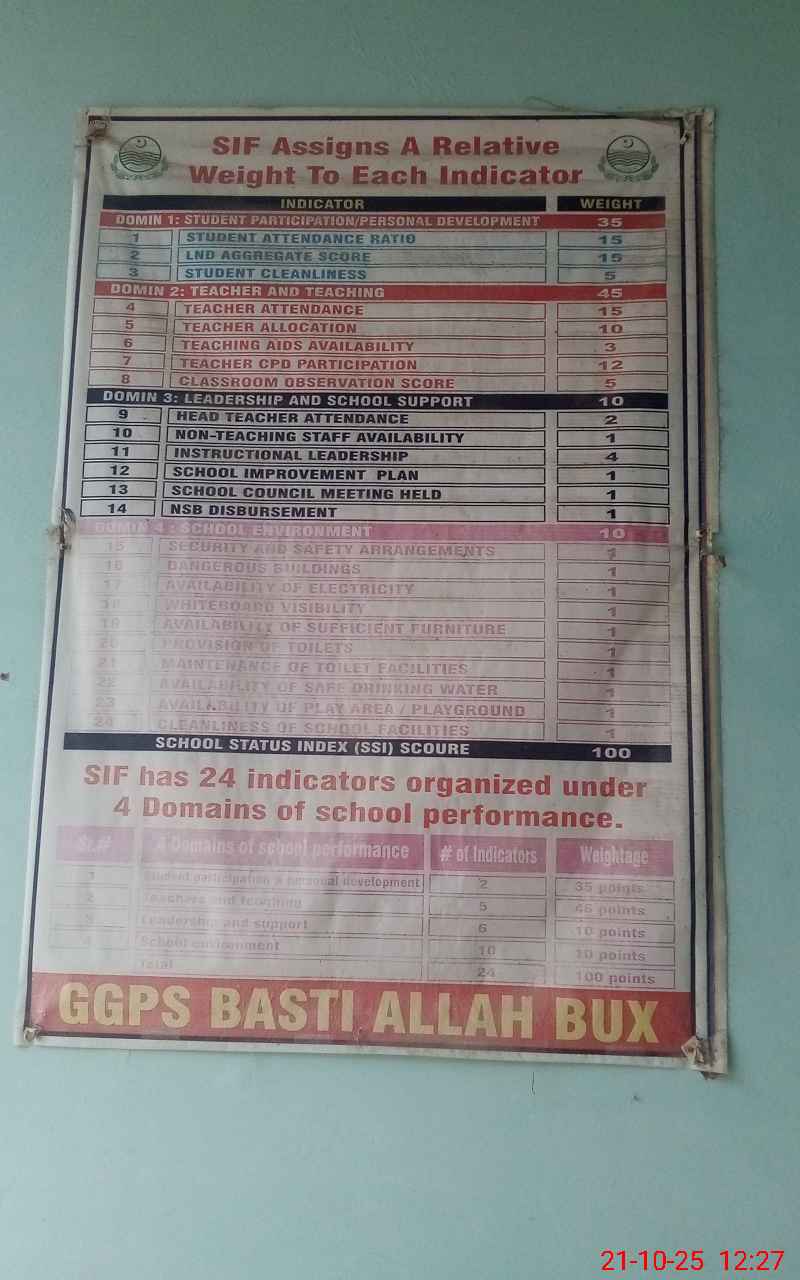 SIF Assigns A Relative
Weight To Each Indicator
INDICATOR WEIGHT
DOMIN 1: STUDENT PARTICIPATION/PERSONAL DEVELOPMENT 35
1 STUDENT ATTENDANCE RATIO 15
2 LND AGGREGATE SCORE 15
3 STUDENT CLEANLINESS 5
DOMIN 2: TEACHER AND TEACHING 45
4 TEACHER ATTENDANCE 15
5 TEACHER ALLOCATION 10
6 TEACHING AIDS AVAILABILITY 3
7 TEACHER CPD PARTICIPATION 12
8 CLASSROOM OBSERVATION SCORE 5
DOMIN 3: LEADERSHIP AND SCHOOL SUPPORT 10
9 HEAD TEACHER ATTENDANCE 2
10 NON-TEACHING STAFF AVAILABILITY 1
11 INSTRUCTIONAL LEADERSHIP 4
12 SCHOOL IMPROVEMENT PLAN 1
13 SCHOOL COUNCIL MEETING HELD 1
14 NSB DISBURSEMENT 1
DOMIN 4 : SCHOOL ENVIRONMENT 10
15 SECURITY AND SAFETY ARRANGEMENTS 1
16 DANGEROUS BUILDINGS 1
17 AVAILABILITY OF ELECTRICITY 1
18 WHITEBOARD VISIBILITY 1
19 AVAILABILITY OF SUFFICIENT FURNITURE 1
20 PROVISION OF TOILETS 1
21 MAINTENANCE OF TOILET FACILITIES 1
22 AVAILABILITY OF SAFE DRINKING WATER 1
23 AVAILABILITY OF PLAY AREA / PLAYGROUND 1
24 CLEANLINESS OF SCHOOL FACILITIES 1
SCHOOL STATUS INDEX (SSI) SCOURE 100
SIF has 24 indicators organized under
4 Domains of school performance.
Sr.# 4 Domains of school performance # of Indicators Weightage
1 Student participation & personal development 2 35 points
2 Teachers and teaching 5 45 points
3 Leadership and support 6 10 points
4 School environment 10 10 points
Total 24 100 points
GGPS BASTI ALLAH BUX
21-10-25 12:27